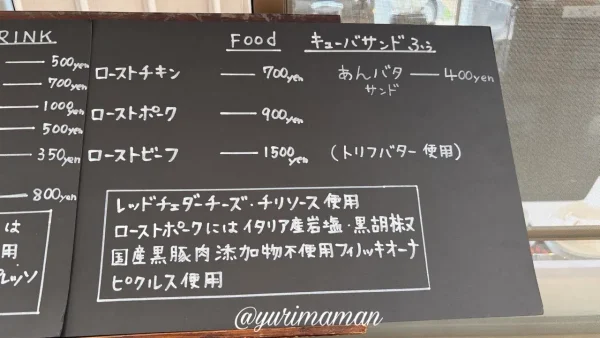 RINK
500yen
700yen
1000yen
500yen
350yen
800yen
は
用
Food キューバサンドふぅ
ローストチキン — 700yen
あんバタ — 400yen
サンド
ローストポーク — 900yen
ローストビーフ — 1500yen (トリフバター使用)
レッドチェダーチーズ・チリソース使用
ローストポークにはイタリア産岩塩・黒胡椒
国産黒豚肉添加物不使用フィノッキオーナ
ピクルス使用
@yurimaman